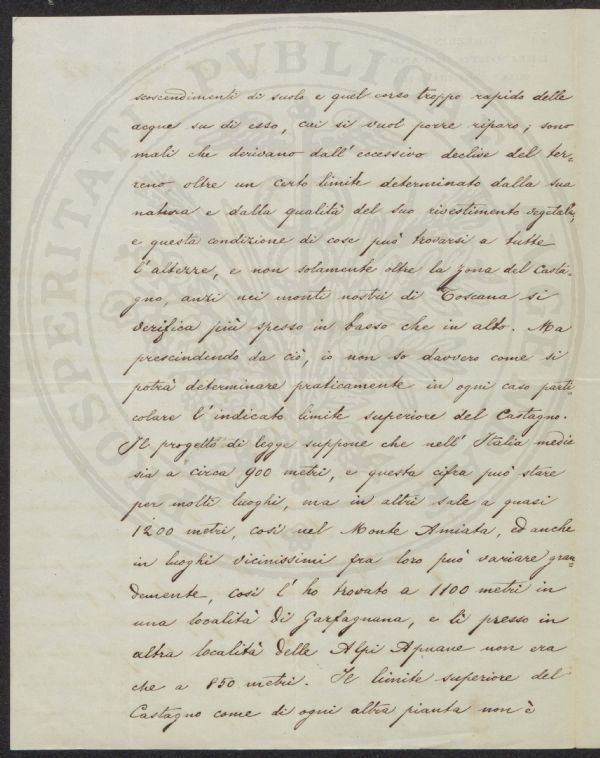 scoscendimenti di suolo e quel corso troppo rapido delle
acque su di esso, cui si vuol porre riparo; sono
mali che derivano dall'eccessivo declive del ter-
reno oltre un certo limite determinato dalla sua
natura e dalla qualità del suo rivestimento vegetale,
e questa condizione di cose può trovarsi a tutte
l'altezze, e non solamente oltre la zona del Casta-
gno, anzi nei monti nostri di Toscana si
verifica più spesso in basso che in alto. Ma
prescindendo da ciò, io non so davvero come si
potrà determinare praticamente in ogni caso parti
colare l'indicato limite superiore del Castagno.
Il progetto di legge suppone che nell'Italia media
sia a circa 900 metri, e questa cifra può stare
per molti luoghi, ma in altri sale a quasi
1200 metri, così nel Monte Amiata, ed anche
in luoghi vicinissimi fra loro può variare gran-
demente, così l'ho trovato a 1100 metri in
una località di Garfagnana, e lì presso in
altra località delle Alpi Apuane non era
che a 850 metri. Il limite superiore del
Castagno come di ogni altra pianta non è
PVBLICAE
PROSPERITATI